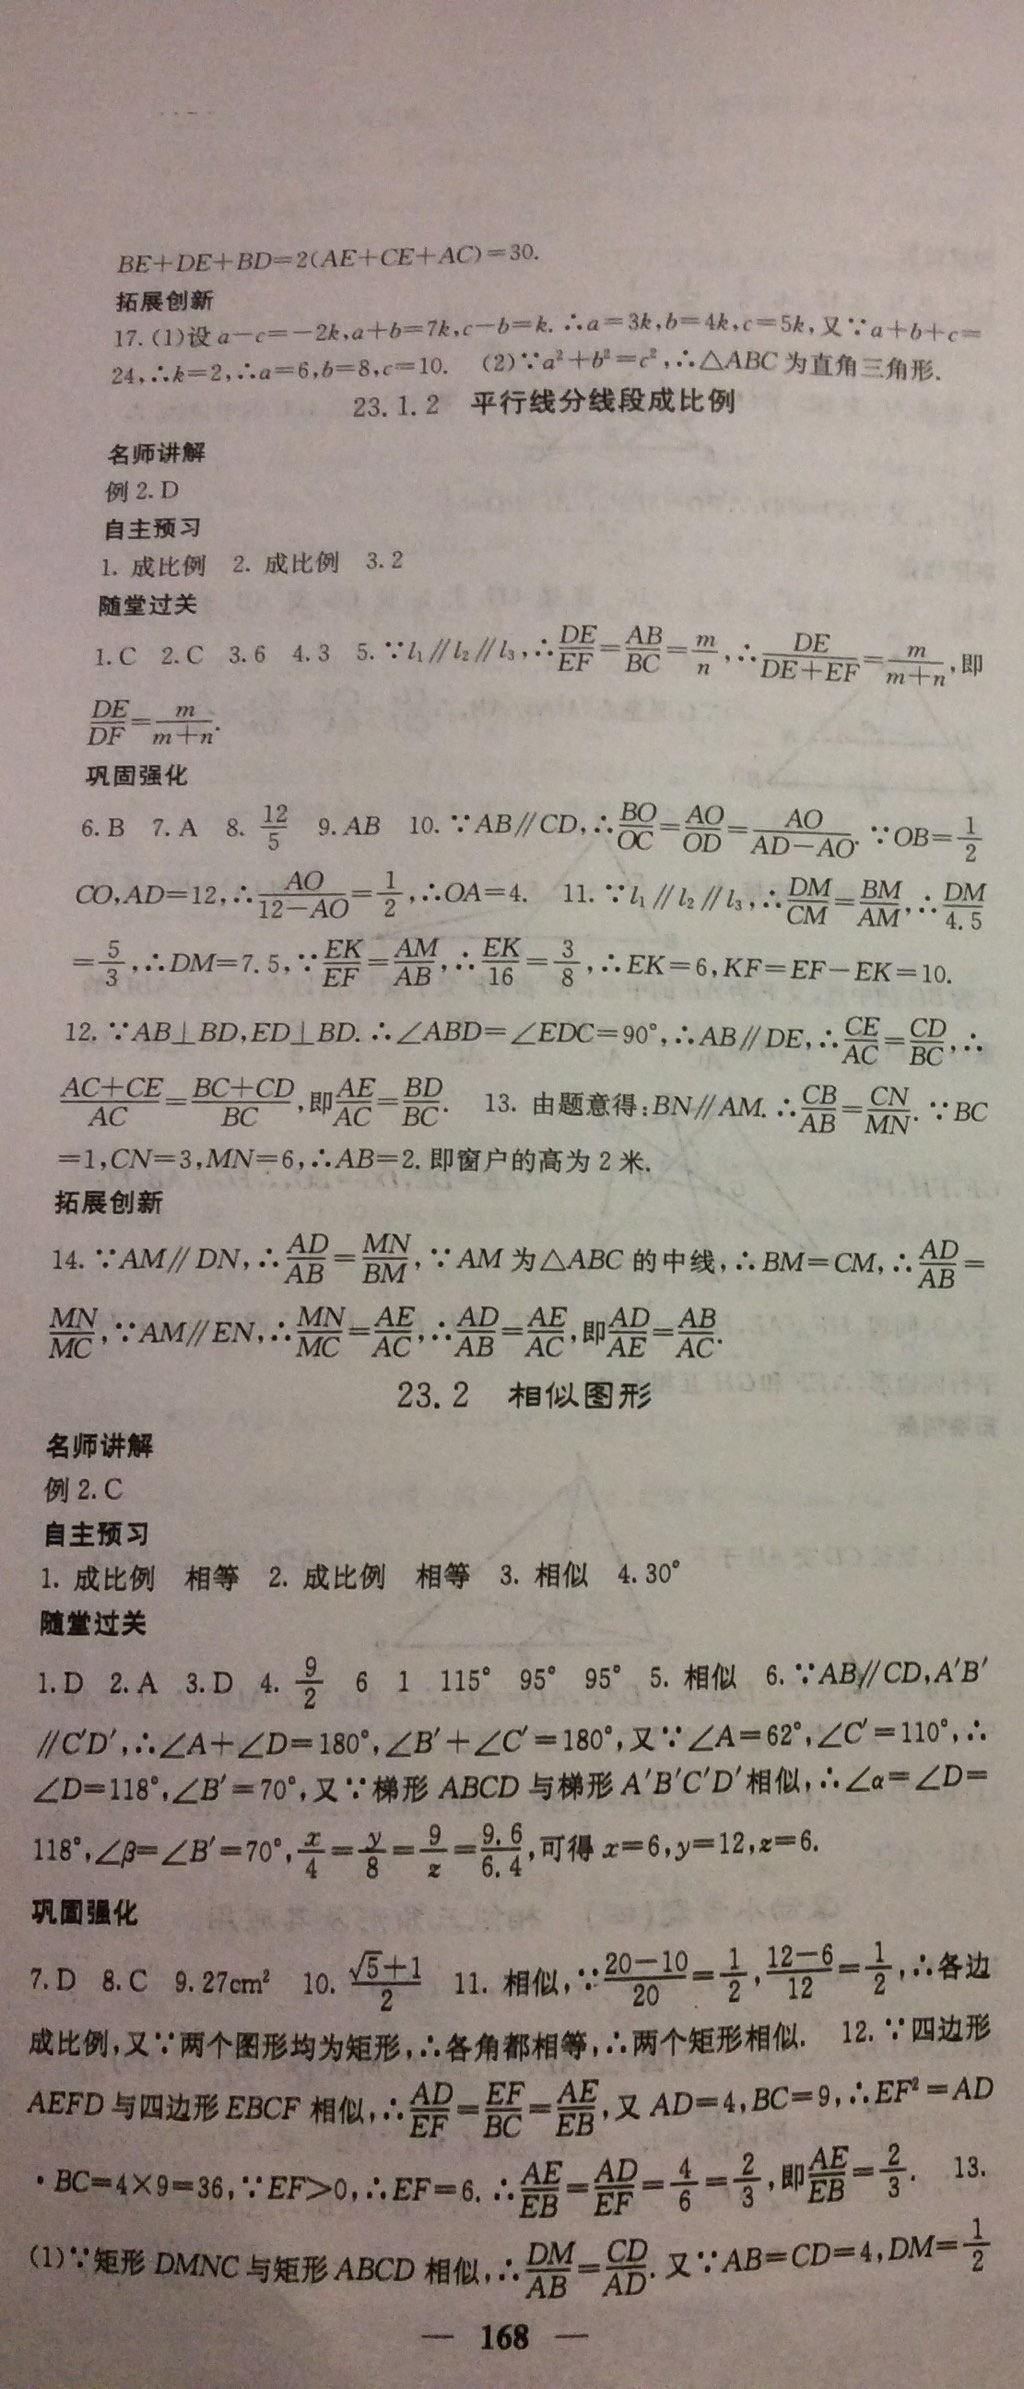 BE+DE+BD=2(AE+CE+AC)=30.
拓展创新
17.(1)设a-c=-2k,a+b=7k,c-b=k.∴a=3k,b=4k,c=5k,又∵a+b+c=
24,∴k=2,∴a=6,b=8,c=10. (2)∵a²+b²=c²,∴△ABC为直角三角形.
23.1.2 平行线分线段成比例
名师讲解
例2.D
自主预习
1. 成比例 2. 成比例 3.2
随堂过关
1.C 2.C 3.6 4.3 5.∵l₁∥l₂∥l₃,∴DE/EF=AB/BC=m/n,∴DE/(DE+EF)=m/(m+n),即
DE/DF=m/(m+n).
巩固强化
6.B 7.A 8. 12/5 9.AB 10.∵AB∥CD,∴BO/OC=AO/OD=AO/(AD-AO).∵OB=1/2
CO,AD=12,∴AO/(12-AO)=1/2,∴OA=4. 11.∵l₁∥l₂∥l₃,∴DM/CM=BM/AM,∴DM/4.5
=5/3,∴DM=7.5,∵EK/EF=AM/AB,∴EK/16=3/8,∴EK=6,KF=EF-EK=10.
12.∵AB⊥BD,ED⊥BD.∴∠ABD=∠EDC=90°,∴AB∥DE,∴CE/AC=CD/BC,∴
(AC+CE)/AC=(BC+CD)/BC,即AE/AC=BD/BC. 13. 由题意得:BN∥AM.∴CB/AB=CN/MN.∵BC
=1,CN=3,MN=6,∴AB=2.即窗户的高为2米.
拓展创新
14.∵AM∥DN,∴AD/AB=MN/BM,∵AM为△ABC的中线,∴BM=CM,∴AD/AB=
MN/MC,∵AM∥EN,∴MN/MC=AE/AC,∴AD/AB=AE/AC,即AD/AE=AB/AC.
23.2 相似图形
名师讲解
例2.C
自主预习
1. 成比例 相等 2. 成比例 相等 3. 相似 4.30°
随堂过关
1.D 2.A 3.D 4. 9/2 6 1 115° 95° 95° 5. 相似 6.∵AB∥CD,A′B′
∥C′D′,∴∠A+∠D=180°,∠B′+∠C′=180°,又∵∠A=62°,∠C′=110°,∴
∠D=118°,∠B′=70°,又∵梯形ABCD与梯形A′B′C′D′相似,∴∠α=∠D=
118°,∠β=∠B′=70°,x/4=y/8=9/z=9.6/6.4,可得x=6,y=12,z=6.
巩固强化
7.D 8.C 9.27cm² 10. (√5+1)/2 11. 相似,∵(20-10)/20=1/2,(12-6)/12=1/2,∴各边
成比例,又∵两个图形均为矩形,∴各角都相等,∴两个矩形相似. 12.∵四边形
AEFD与四边形EBCF相似,∴AD/EF=EF/BC=AE/EB,又AD=4,BC=9,∴EF²=AD
·BC=4×9=36,∵EF>0,∴EF=6.∴AE/EB=AD/EF=4/6=2/3,即AE/EB=2/3. 13.
(1)∵矩形DMNC与矩形ABCD相似,∴DM/AB=CD/AD.又∵AB=CD=4,DM=1/2
— 168 —